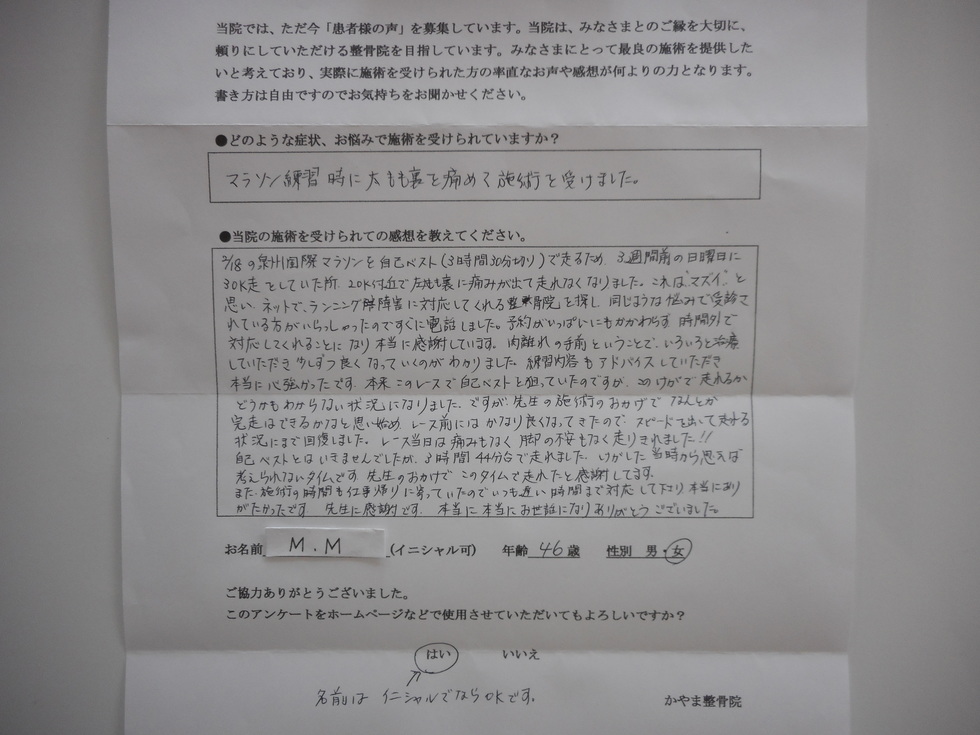 当院では、ただ今「患者様の声」を募集しています。当院は、みなさまとのご縁を大切に、
頼りにしていただける整骨院を目指しています。みなさまにとって最良の施術を提供した
いと考えており、実際に施術を受けられた方の率直なお声や感想が何よりの力となります。
書き方は自由ですのでお気持ちをお聞かせください。
●どのような症状、お悩みで施術を受けられていますか？
マラソン練習時に太もも裏を痛めて施術を受けました。
●当院の施術を受けられての感想を教えてください。
2/18の泉州国際マラソンを自己ベスト(3時間30分切り)で走るため、3週間前の日曜日に
30K走をしていた所、20K付近で左もも裏に痛みが出て走れなくなりました。これは"マズイ"と
思い、ネットで、ランニング障害に対応してくれる整骨院を探し、同じような悩みで受診さ
れている方がいらっしゃったのですぐに電話しました。予約がいっぱいにもかかわらず、時間外で
対応してくれることになり本当に感謝しています。肉離れの手前ということで、いろいろと治療
していただき少しずつ良くなっていくのがわかりました。練習内容もアドバイスしていただき
本当に心強かったです。本来このレースで自己ベストを狙っていたのですが、このけがで走れるか
どうかもわからない状況になりました。ですが、先生の施術のおかげでなんとか
完走はできるかなと思い始め、レース前にはかなり良くなってきたので、スピードを出して走する
状況にまで回復しました。レース当日は痛みもなく脚の不安もなく走りきれました!!
自己ベストとはいきませんでしたが、3時間44分台で走れました。けがした当時から思えば
考えられないタイムです。先生のおかげでこのタイムで走れたと感謝してます。
また、施術の時間も仕事帰りに寄っていたのでいつも遅い時間まで対応して下さり、本当にあり
がたかったです。先生に感謝です。本当に本当にお世話になりありがとうございました。
お名前 M.M (イニシャル可) 年齢 46歳 性別 男・女
ご協力ありがとうございました。
このアンケートをホームページなどで使用させていただいてもよろしいですか？
はい いいえ
名前はイニシャルでならOKです。
かやま整骨院